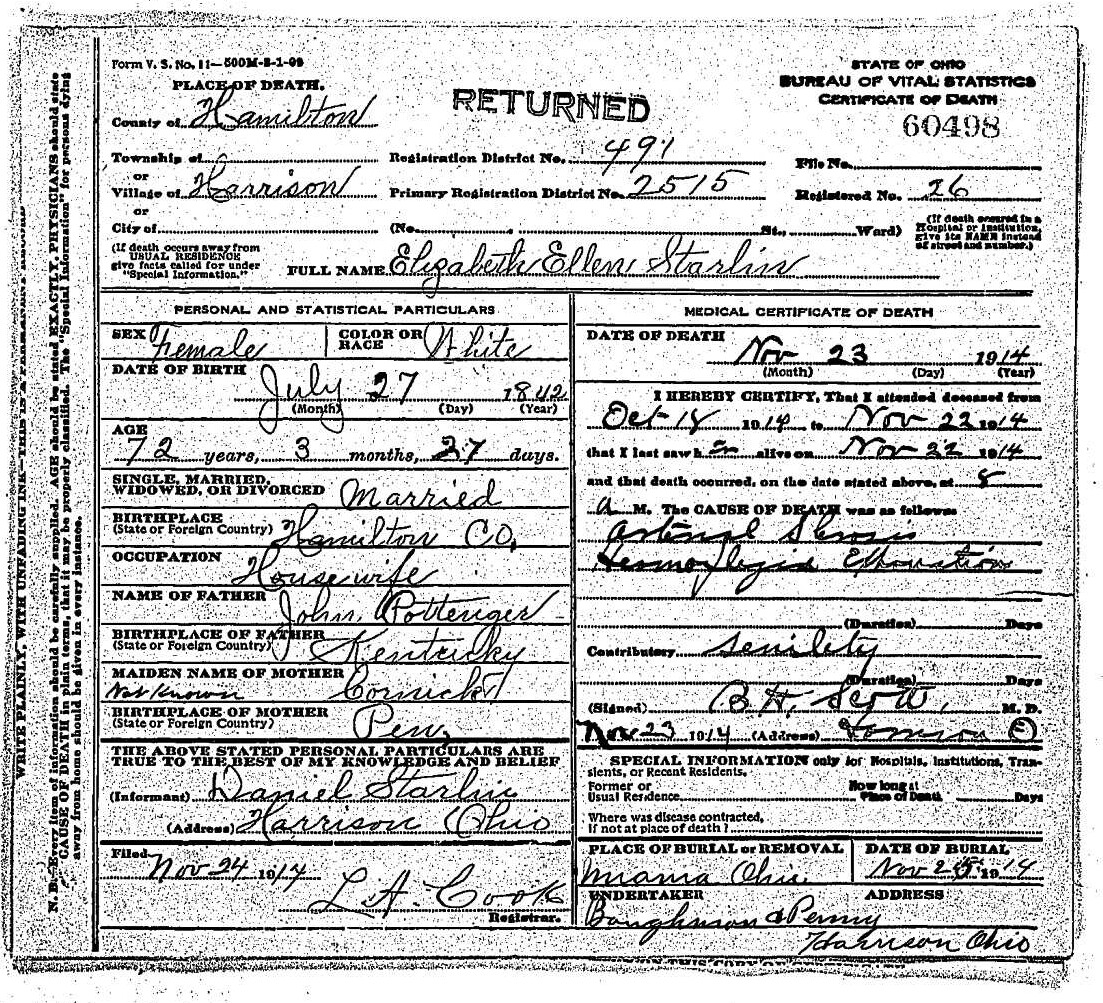 Form V. S. No. 11—500M-8-1-09
PLACE OF DEATH.
County of Hamilton
Township of
or
Village of Harrison
or
City of
(If death occurs away from
USUAL RESIDENCE
give facts called for under
"Special Information.")
RETURNED
STATE OF OHIO
BUREAU OF VITAL STATISTICS
CERTIFICATE OF DEATH
60498
Registration District No. 491
File No.
Primary Registration District No. 2515
Registered No. 26
(No. St., Ward)
(If death occured in a
Hospital or Institution,
give its NAME instead
of street and number.)
FULL NAME Elizabeth Ellen Starlin
PERSONAL AND STATISTICAL PARTICULARS
SEX Female
COLOR OR RACE White
DATE OF BIRTH
July 27 1842
(Month) (Day) (Year)
AGE
72 years, 3 months, 27 days.
SINGLE, MARRIED,
WIDOWED, OR DIVORCED Married
BIRTHPLACE
(State or Foreign Country) Hamilton CO,
OCCUPATION Housewife
NAME OF FATHER John Pottenger
BIRTHPLACE OF FATHER
(State or Foreign Country) Kentucky
MAIDEN NAME OF MOTHER
Not Known Cornick
BIRTHPLACE OF MOTHER
(State or Foreign Country) Penn
THE ABOVE STATED PERSONAL PARTICULARS ARE
TRUE TO THE BEST OF MY KNOWLEDGE AND BELIEF
(Informant) Daniel Starlin
(Address) Harrison Ohio
Filed
Nov 24 1914
L.A. Cook
Registrar.
MEDICAL CERTIFICATE OF DEATH
DATE OF DEATH
Nov 23 1914
(Month) (Day) (Year)
I HEREBY CERTIFY, That I attended deceased from
Oct 18 1914 to Nov 22 1914
that I last saw h alive on Nov 22 1914
and that death occurred, on the date stated above, at 8
a M. The CAUSE OF DEATH was as follows:
(Duration) Days
Contributory senilety
(Duration) Days
(Signed) B.H. Scott, M. D.
Nov 23 1914 (Address)
SPECIAL INFORMATION only for Hospitals, Institutions, Tran-
sients, or Recent Residents.
Former or
Usual Residence
How long at
Place of Death Days
Where was disease contracted,
If not at place of death?
PLACE OF BURIAL or REMOVAL
Ohio.
DATE OF BURIAL
Nov 25 1914
UNDERTAKER
& Penny
ADDRESS
Harrison Ohio
WRITE PLAINLY, WITH UNFADING INK—THIS IS A PERMANENT RECORD
N. B.—Every item of information should be carefully supplied. AGE should be stated EXACTLY. PHYSICIANS should state
CAUSE OF DEATH in plain terms, that it may be properly classified. The "Special Information" for persons dying
away from home should be given in every instance.